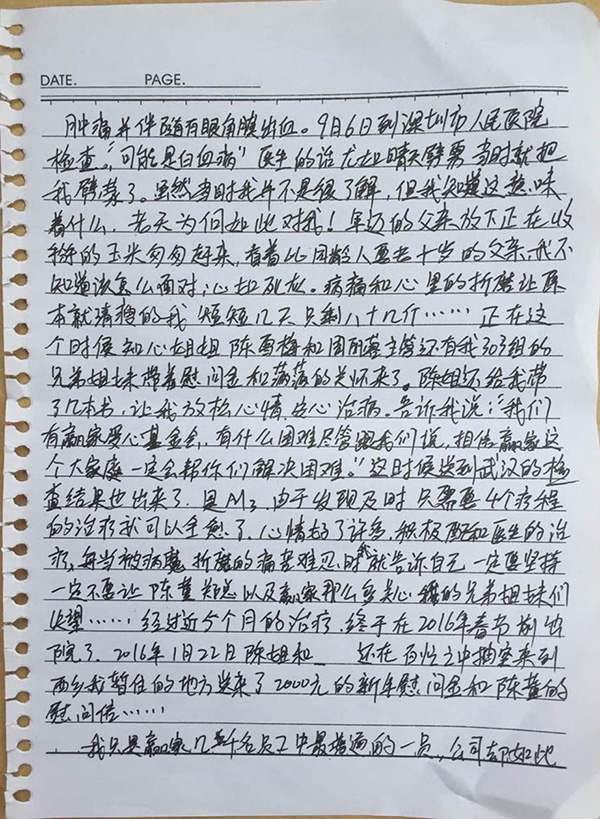 DATE. PAGE.
肿痛并伴随有眼角膜出血。9月6日到深圳市人民医院
检查。"可能是白血病"医生的话尤如晴天霹雳当时就把
我劈蒙了。虽然当时我并不是很了解,但我知道这意味
着什么,老天为何如此对我!年迈的父亲放下正在收
掰的玉米匆匆赶来,看着比同龄人要老十岁的父亲,我不
知道该怎么面对,心如死灰。病痛和心里的折磨让原
本就清瘦的我短短几天只剩八十几斤……正在这
个时候知心姐姐陈雪梅和周丽蓉主管还有我303组的
兄弟姐妹带着慰问金和满满的关怀来了。陈姐还给我带
了几本书,让我放松心情,安心治病。告诉我说:"我们
有赢家爱心基金会,有什么困难尽管跟我们说,相信赢家这
个大家庭一定会帮你们解决困难。"这时候送到武汉的检
查结果也出来了.是M3,由于发现及时只需要4个疗程
的治疗就可以全愈了.心情好了许多,积极配和医生的治
疗,每当被病魔折磨的痛苦难忍时就告诉自己一定要坚持
一定不要让陈董 以及赢家那么多关心我的兄弟姐妹们
失望……经过近5个月的治疗.终于在2016年春节前出
院了.2016年1月22日陈姐和 还在百忙之中抽空来到
西乡我暂住的地方送来了2000元的新年慰问金和陈董的
慰问信……
我只是赢家几千名员工中最普通的一员,公司却如此